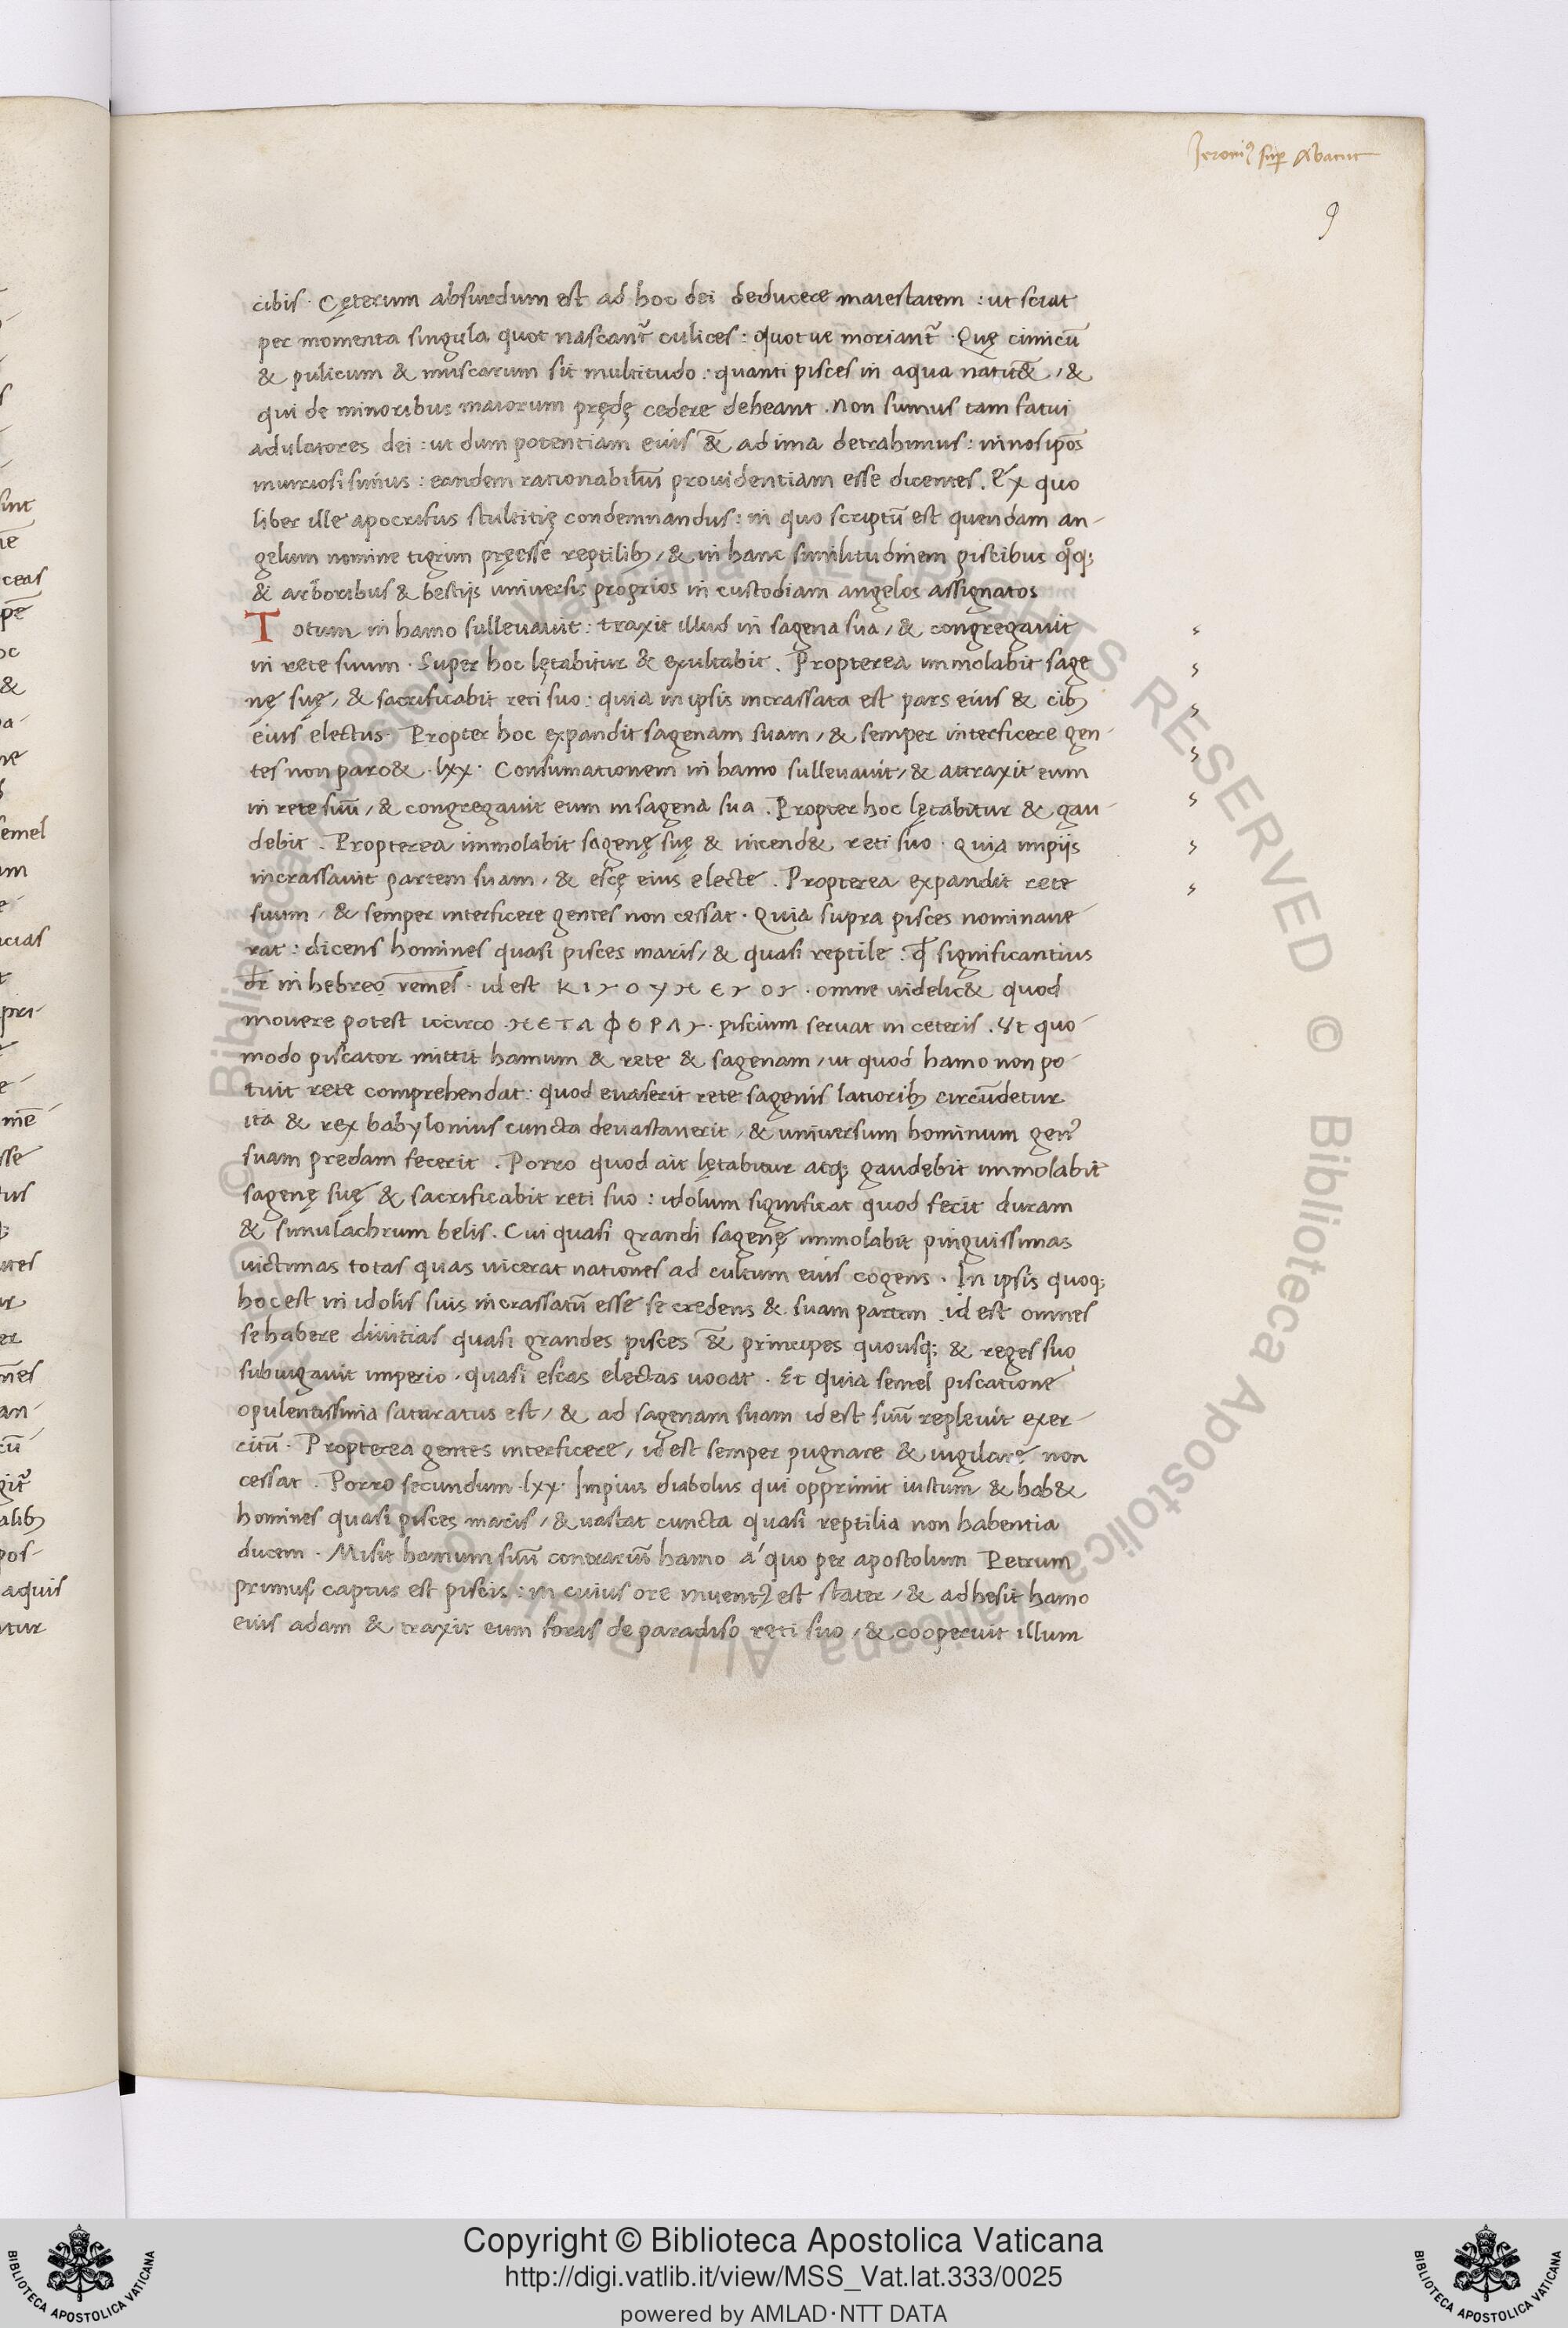 Jeroniꝰ sup̲ Abacuc
9
cibis · Cęterum absurdum est ad hoc dei deducere maiestatem : ut sciat
per momenta singula quot nascant᷑ culices : quotue moriant᷑ · Quę cimicū
& pulicum & muscarum sit multitudo : quanti pisces in aqua natēt , &
qui de minoribus maiorum prędę cedere debeant . Non sumus tam fatui
adulatores dei : ut dum potentiam eius &̄ ad ima detrahimus : in nosip̄os
iniuriosi simus : eandem rationabiliū prouidentiam esse dicentes . Ex quo
liber ille apocrifus stultitię condemnandus : in quo scriptū est quendam an-
gelum nomine tigrim pręesse reptilibꝫ , & in hanc similitudinem piscibus qͦqꝫ
& arboribus & bestijs universis proprios in custodiam angelos assignatos
Totum in hamo sulleuauit : traxit illud in sagena sua , & congregauit
in rete suum · Super hoc lętabitur & exultabit . Propterea immolabit sage
nę suę , & sacrificabit reti suo : quia in ipsis incrassata est pars eius & cibꝫ
eius electus · Propter hoc expandit sagenam suam , & semper interficere gen-
tes non parc& · lxx · Consumationem in hamo sulleuauit , & attraxit eum
in rete suū , & congregauit eum in sagena sua . Propter hoc lętabitur & gau-
debit . Propterea immolabit sagenę suę & incend& reti suo · Quia in ipijs
incrassauit partem suam , & escę eius electe . Propterea expandit rete
suum , & semper interficere gentes non cessat · Quia supra pisces nominaue-
rat : dicens homines quasi pisces maris , & quasi reptile . qđ significantius
dr̄ in hebreo remes · id est ΚΙΥΟΥΜΕΥΟΥ · omne uidelic& quod
mouere potest iccirco · ΜΕΤΑΦΟΡΑΥ · piscium seruat in ceteris . Ut quo-
modo piscator mittit hamum & rete & sagenam , ut quod hamo non po-
tuit rete comprehendat : quod euaserit rete sagenis latioribꝫ circūdetur
ita & rex babylonius cuncta deuastauerit , & universum hominum genꝰ
suam predam fecerit . Porro quod ait lętabitur atqꝫ gaudebit immolabit
sagenę suę & sacrificabit reti suo : idolum significat quod fecit duram
& simulachrum belis . Cui quasi grandi sagenę immolabit pinguissimas
uictimas totas quas uicerat nationes ad cultum eius cogens . In ipsis quoqꝫ
hoc est in idolis suis incrassatū esse se credens & suam partem . id est omnes
se habere diuitias quasi grandes pisces &̄ principes quousqꝫ & reges suo
subiugauit imperio , quasi escas electas uocat . Et quia semel piscatione
opulentissima saturatus est , & ad sagenam suam id est suū repleuit exer-
citū · Propterea gentes interficere , id est semper pugnare & iugulare non
cessat . Porro secundum · lxx · Impius diabolus qui opprimit iustum & hab&
homines quasi pisces maris , & uastat cuncta quasi reptilia non habentia
ducem · Misit hamum suū contrariū hamo a' quo per apostolum Petrum
primus captus est piscis : in cuius ore inuentꝰ est stater , & adhesit hamo
eius adam & traxit eum foras de paradiso reti suo , & cooperuit illum
Copyright © Biblioteca Apostolica Vaticana
http://digi.vatlib.it/view/MSS_Vat.lat.333/0025
powered by AMLAD·NTT DATA